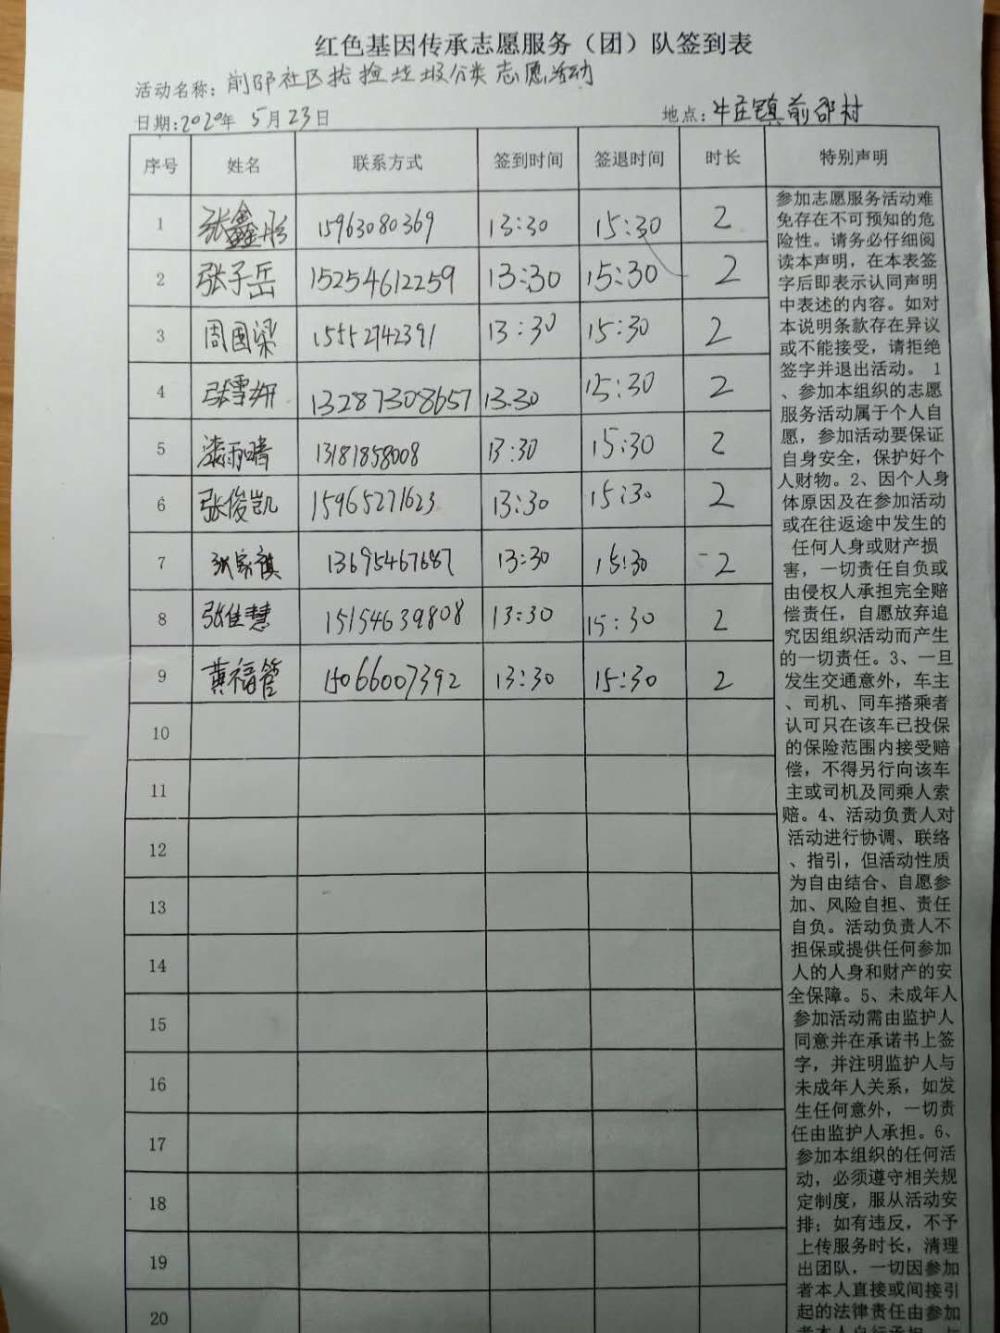 红色基因传承志愿服务（团）队签到表
活动名称：前邵社区捡垃圾分类志愿活动
日期：2020年 5月23日 地点：牛庄镇前邵村
序号 姓名 联系方式 签到时间 签退时间 时长 特别声明
1 张鑫彤 15963080369 13:30 15:30 2
2 张子岳 15254612259 13:30 15:30 2
3 周国梁 15552742391 13:30 15:30 2
4 张雪妍 13287308657 13.30 15:30 2
5 雨晴 13181858008 13:30 15:30 2
6 张俊凯 15965271623 13:30 15:30 2
7 张家祺 13695467687 13:30 15:30 2
8 张佳慧 15154639808 13:30 15:30 2
9 黄福管 15066007392 13:30 15:30 2
10
11
12
13
14
15
16
17
18
19
20
参加志愿服务活动难
免存在不可预知的危
险性。请务必仔细阅
读本声明，在本表签
字后即表示认同声明
中表述的内容。如对
本说明条款存在异议
或不能接受，请拒绝
签字并退出活动。 1
、参加本组织的志愿
服务活动属于个人自
愿，参加活动要保证
自身安全，保护好个
人财物。2、因个人身
体原因及在参加活动
或在往返途中发生的
任何人身或财产损
害，一切责任自负或
由侵权人承担完全赔
偿责任，自愿放弃追
究因组织活动而产生
的一切责任。3、一旦
发生交通意外，车主
、司机、同车搭乘者
认可只在该车已投保
的保险范围内接受赔
偿，不得另行向该车
主或司机及同乘人索
赔。4、活动负责人对
活动进行协调、联络
、指引，但活动性质
为自由结合、自愿参
加、风险自担、责任
自负。活动负责人不
担保或提供任何参加
人的人身和财产的安
全保障。5、未成年人
参加活动需由监护人
同意并在承诺书上签
字，并注明监护人与
未成年人关系，如发
生任何意外，一切责
任由监护人承担。6、
参加本组织的任何活
动，必须遵守相关规
定制度，服从活动安
排；如有违反，不予
上传服务时长，清理
出团队，一切因参加
者本人直接或间接引
起的法律责任由参加
者本人自行承担